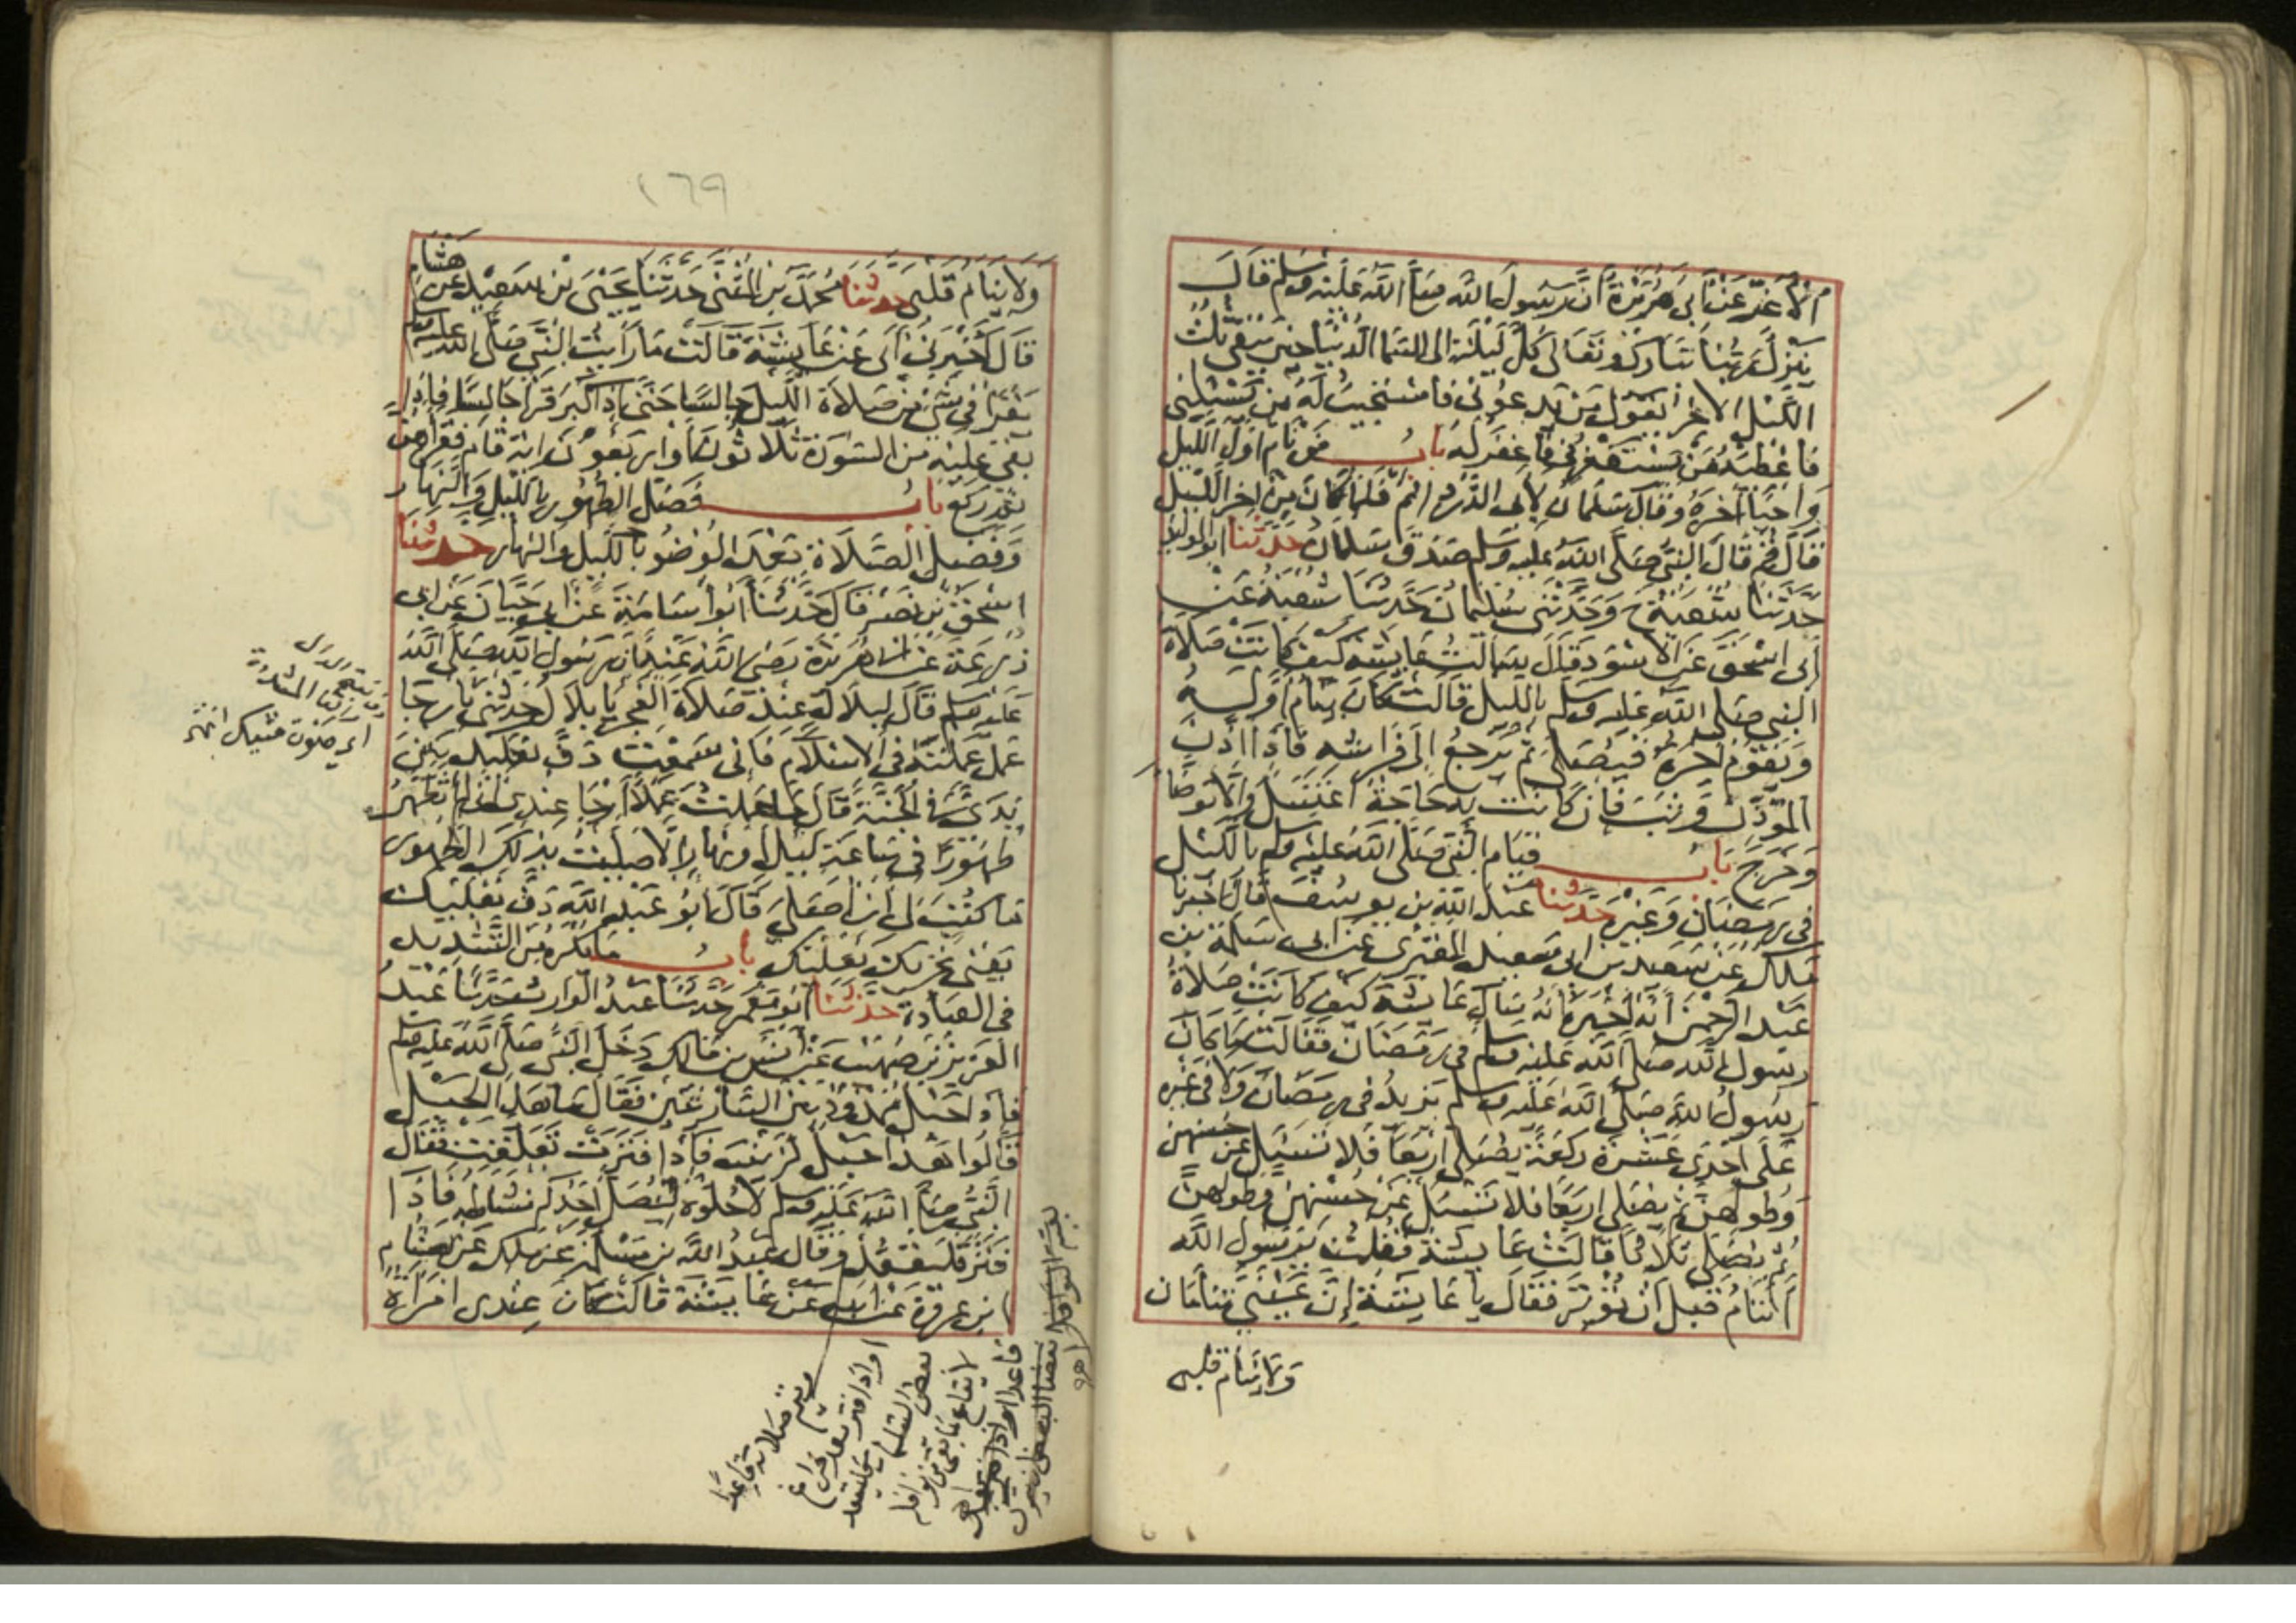 الاغر عن ابي هريرة ان رسول الله صلى الله عليه وسلم قال
ينزل ربنا تبارك وتعالى كل ليلة الى السما الدنيا حين يبقى ثلث
الليل الاخر يقول من يدعوني فاستجيب له من يسئلني
فاعطيه من يستغفرني فاغفر له باب من نام اول الليل
واحيا آخره وقال سلمان لابي الدرداء نم فلما كان من اخر الليل
قال قم قال النبي صلى الله عليه وسلم صدق سلمان حدثنا ابو الوليد
حدثنا شعبة ح وحدثني سليمان حدثنا شعبة عن
ابي اسحق عن الاسود قال سالت عايشة كيف كانت صلاة
النبي صلى الله عليه وسلم بالليل قالت كان ينام اوله
ويقوم اخره فيصلي ثم يرجع الى فراشه فاذا اذن
المؤذن وثب فان كانت به حاجة اغتسل والا توضا
وخرج باب قيام النبي صلى الله عليه وسلم بالليل
في رمضان وغيره حدثنا عبد الله بن يوسف قال اخبرنا
ملك عن سعيد بن ابي سعيد المقبري عن ابي سلمة بن
عبد الرحمن انه اخبره انه سال عايشة كيف كانت صلاة
رسول الله صلى الله عليه وسلم في رمضان فقالت ما كان
رسول الله صلى الله عليه وسلم يزيد في رمضان ولا في غيره
على احدى عشرة ركعة يصلي اربعا فلا تسئل عن حسنهن
وطولهن ثم يصلي اربعا فلا تسئل عن حسنهن وطولهن
ثم يصلي ثلاثا قالت عايشة فقلت يرسول الله
اتنام قبل ان توتر فقال يا عايشة إن عيني تنامان
ولا ينام قلبي
١٦٩
ولا ينام قلبي حدثنا محمد بن المثنى حدثنا يحيى بن سعيد عن هشام
قال اخبرني ابي عن عايشة قالت ما رايت النبي صلى الله عليه وسلم
يقرا في شئ من صلاة الليل جالسا حتى اذا كبر قرا جالسا فاذا
بقي عليه من السورة ثلاثون او اربعون اية قام فقراهن
ثم ركع باب فضل الطهور بالليل والنهار
وفضل الصلاة بعد الوضو بالليل والنهار حدثنا
اسحق بن نصر قال حدثنا ابو اسامة عن ابي حيان عن ابي
زرعة عن ابي هريرة رضي الله عنه ان رسول الله صلى الله
عليه وسلم قال لبلال له عند صلاة الفجر يا بلال حدثني بارجا
عمل عملته في الاسلام فاني سمعت دف نعليك بين
يدي في الجنة قال ما عملت عملا ارجا عندي اني لم اتطهر
طهورا في ساعة ليل او نهار الا صليت بذلك الطهور
ما كتب لي ان اصلي قال ابو عبد الله دف نعليك
يعني تحريك نعليك باب ما يكره من التشديد
في العبادة حدثنا ابو معمر حدثنا عبد الوارث حدثنا عبد
العزيز بن صهيب عن انس بن مالك دخل النبي صلى الله عليه وسلم
فاذا حبل ممدود بين الساريتين فقال ما هذا الحبل
قالوا هذا حبل لزينب فاذا فترت تعلقت فقال
النبي صلى الله عليه وسلم لا حلوه ليصل احدكم نشاطه فاذا
فتر فليقعد وقال عبد الله بن مسلمة عن ملك عن هشام
بن عروة عن ابيه عن عايشة قالت كان عندي امراة
ويتم صلاته قاعدا
او اذا فتر بعد فراغ
بعض التسليمات فليقعد
لايقاع ما بقي من نوافله